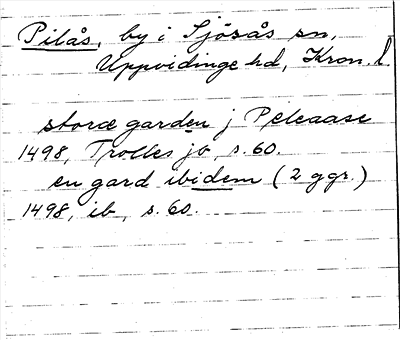 Pilås, by i Sjösås sn,
Uppvidinge hd, Kron. l.
storæ garden j Peleaase
1498, Trolles jb, s. 60.
en gard ibidem (2 ggr.)
1498, ib, s. 60.